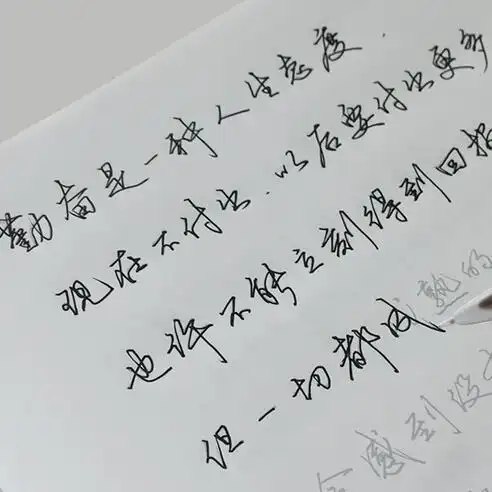 勤奋是一种人生态度.
现在不付出.以后要付出更多
也许不能立刻得到回报
但一切都成熟的
感到没